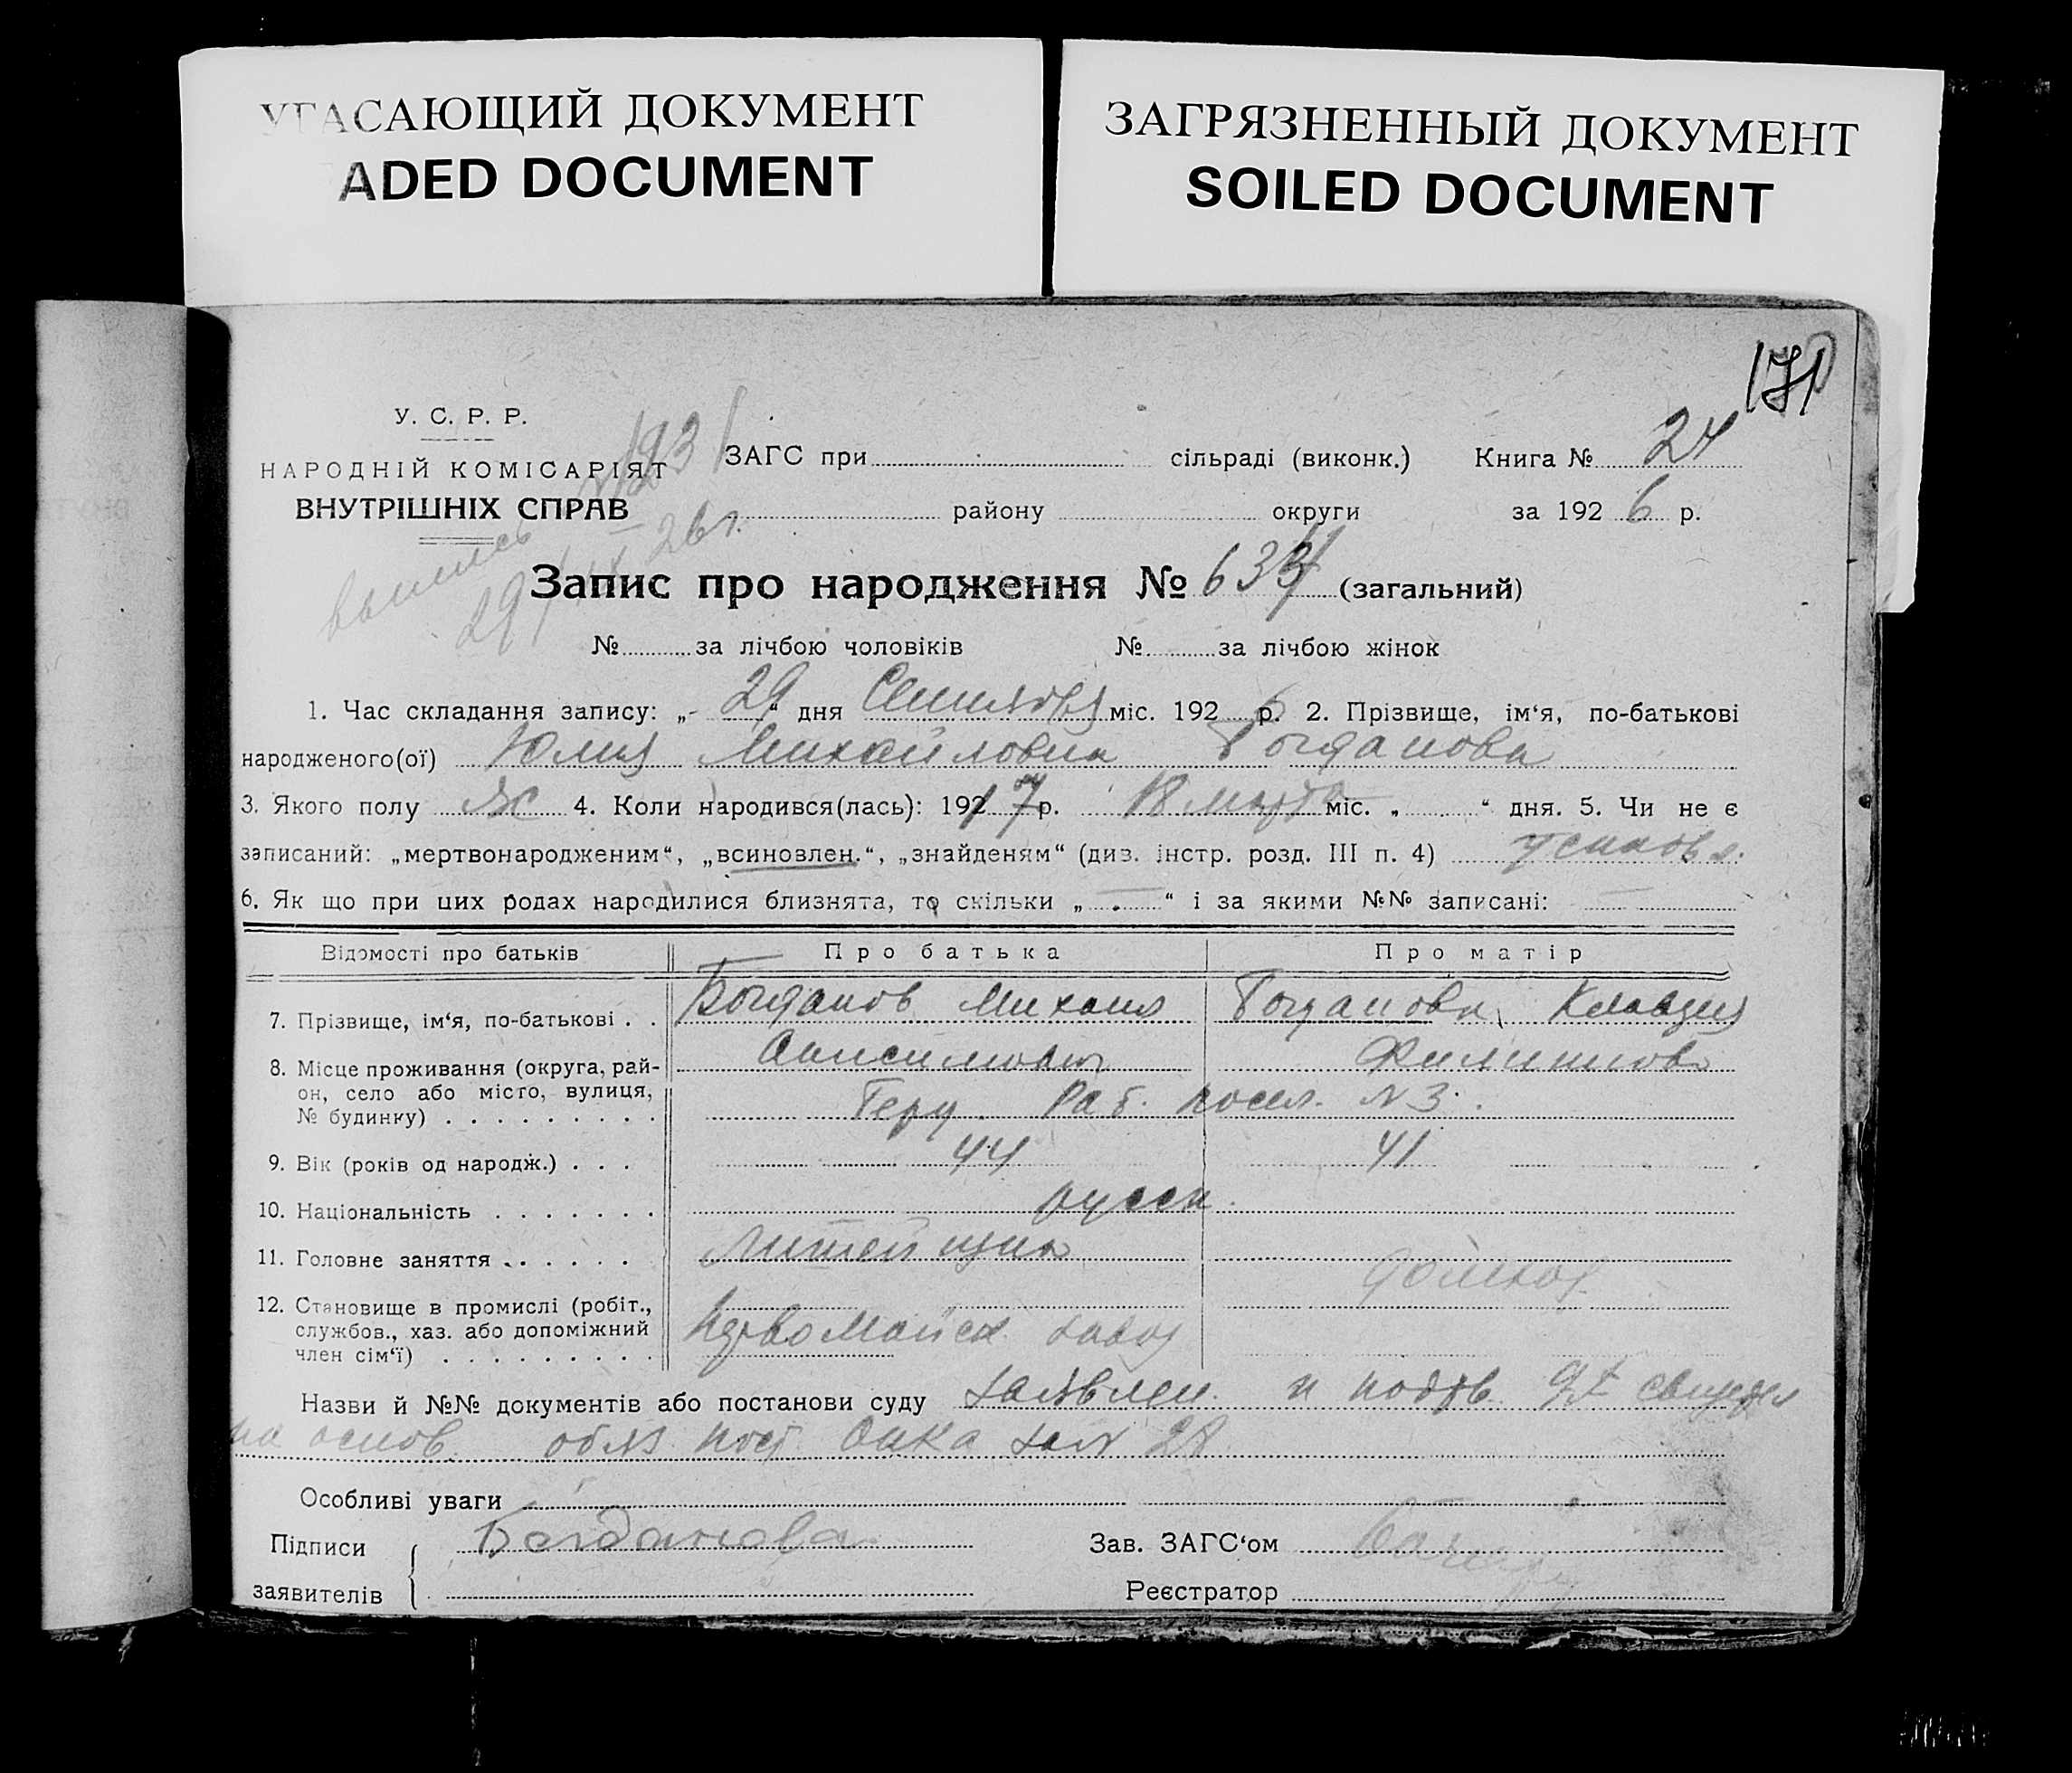 УГАСАЮЩИЙ ДОКУМЕНТ
ADED DOCUMENT
ЗАГРЯЗНЕННЫЙ ДОКУМЕНТ
SOILED DOCUMENT
171
У. С. Р. Р.
НАРОДНІЙ КОМІСАРІЯТ
ВНУТРІШНІХ СПРАВ
ЗАГС при сільраді (виконк.) Книга № 24
району округи за 192 6 р.
выпись
29/IX 26 г.
Запис про народження № 634 (загальний)
№ за лічбою чоловіків № за лічбою жінок
1. Час складання запису: „ 29 “ дня Сентября міс. 192 6 р. 2. Прізвище, ім‘я, по-батькові
народженого(ої) Юлия Михайловна Богданова
3. Якого полу ж 4. Коли народився(лась): 1917 р. 18 марта міс. „ “ дня. 5. Чи не є
записаний: „мертвонародженим“, „всиновлен.“, „знайденям“ (див. інстр. розд. III п. 4) усыновл.
6. Як що при цих родах народилися близнята, то скільки „ — “ і за якими №№ записані: —
Відомості про батьків Про батька Про матір
7. Прізвище, ім‘я, по-батькові . . Богданов Михаил Богданова Клавдия
Анисимович Филиппов
8. Місце проживання (округа, рай-
он, село або місто, вулиця,
№ будинку) . . . . . . . . . Раб. посел. N 3.
9. Вік (років од народж.) . . . 44 41
10. Національність . . . . . . . русск.
11. Головне заняття . . . . . . Литейщик
домхоз.
12. Становище в промислі (робіт.,
службов., хаз. або допоміжний
член сім‘ї) . . . . . . . . . Первомайск завод
Назви й №№ документів або постанови суду заявлен. и подтв. 2х свидет
на основ. обяз пост. 28
Особливі уваги
Підписи Богданова Зав. ЗАГС‘ом
заявителів Реєстратор